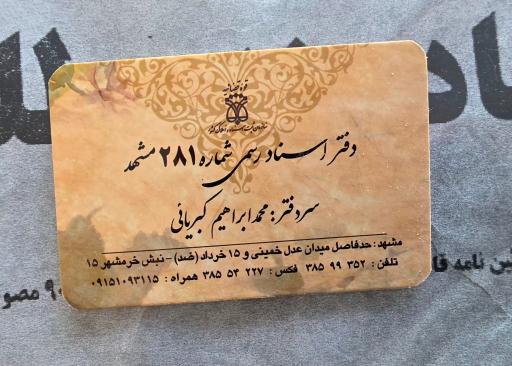 قوه قضائیه
سازمان ثبت اسناد و املاک کشور
دفتر اسناد رسمی شماره ۲۸۱ مشهد
سردفتر: محمدابراهیم کبریائی
مشهد: حدفاصل میدان عدل خمینی و ۱۵ خرداد (ضد) – نبش خرمشهر ۱۵
تلفن: ۳۵۲ ۹۹ ۳۸۵ فکس: ۲۲۷ ۵۴ ۳۸۵ همراه: ۰۹۱۵۱۰۹۳۱۱۵
ین نامه قا
۹۰ مصو